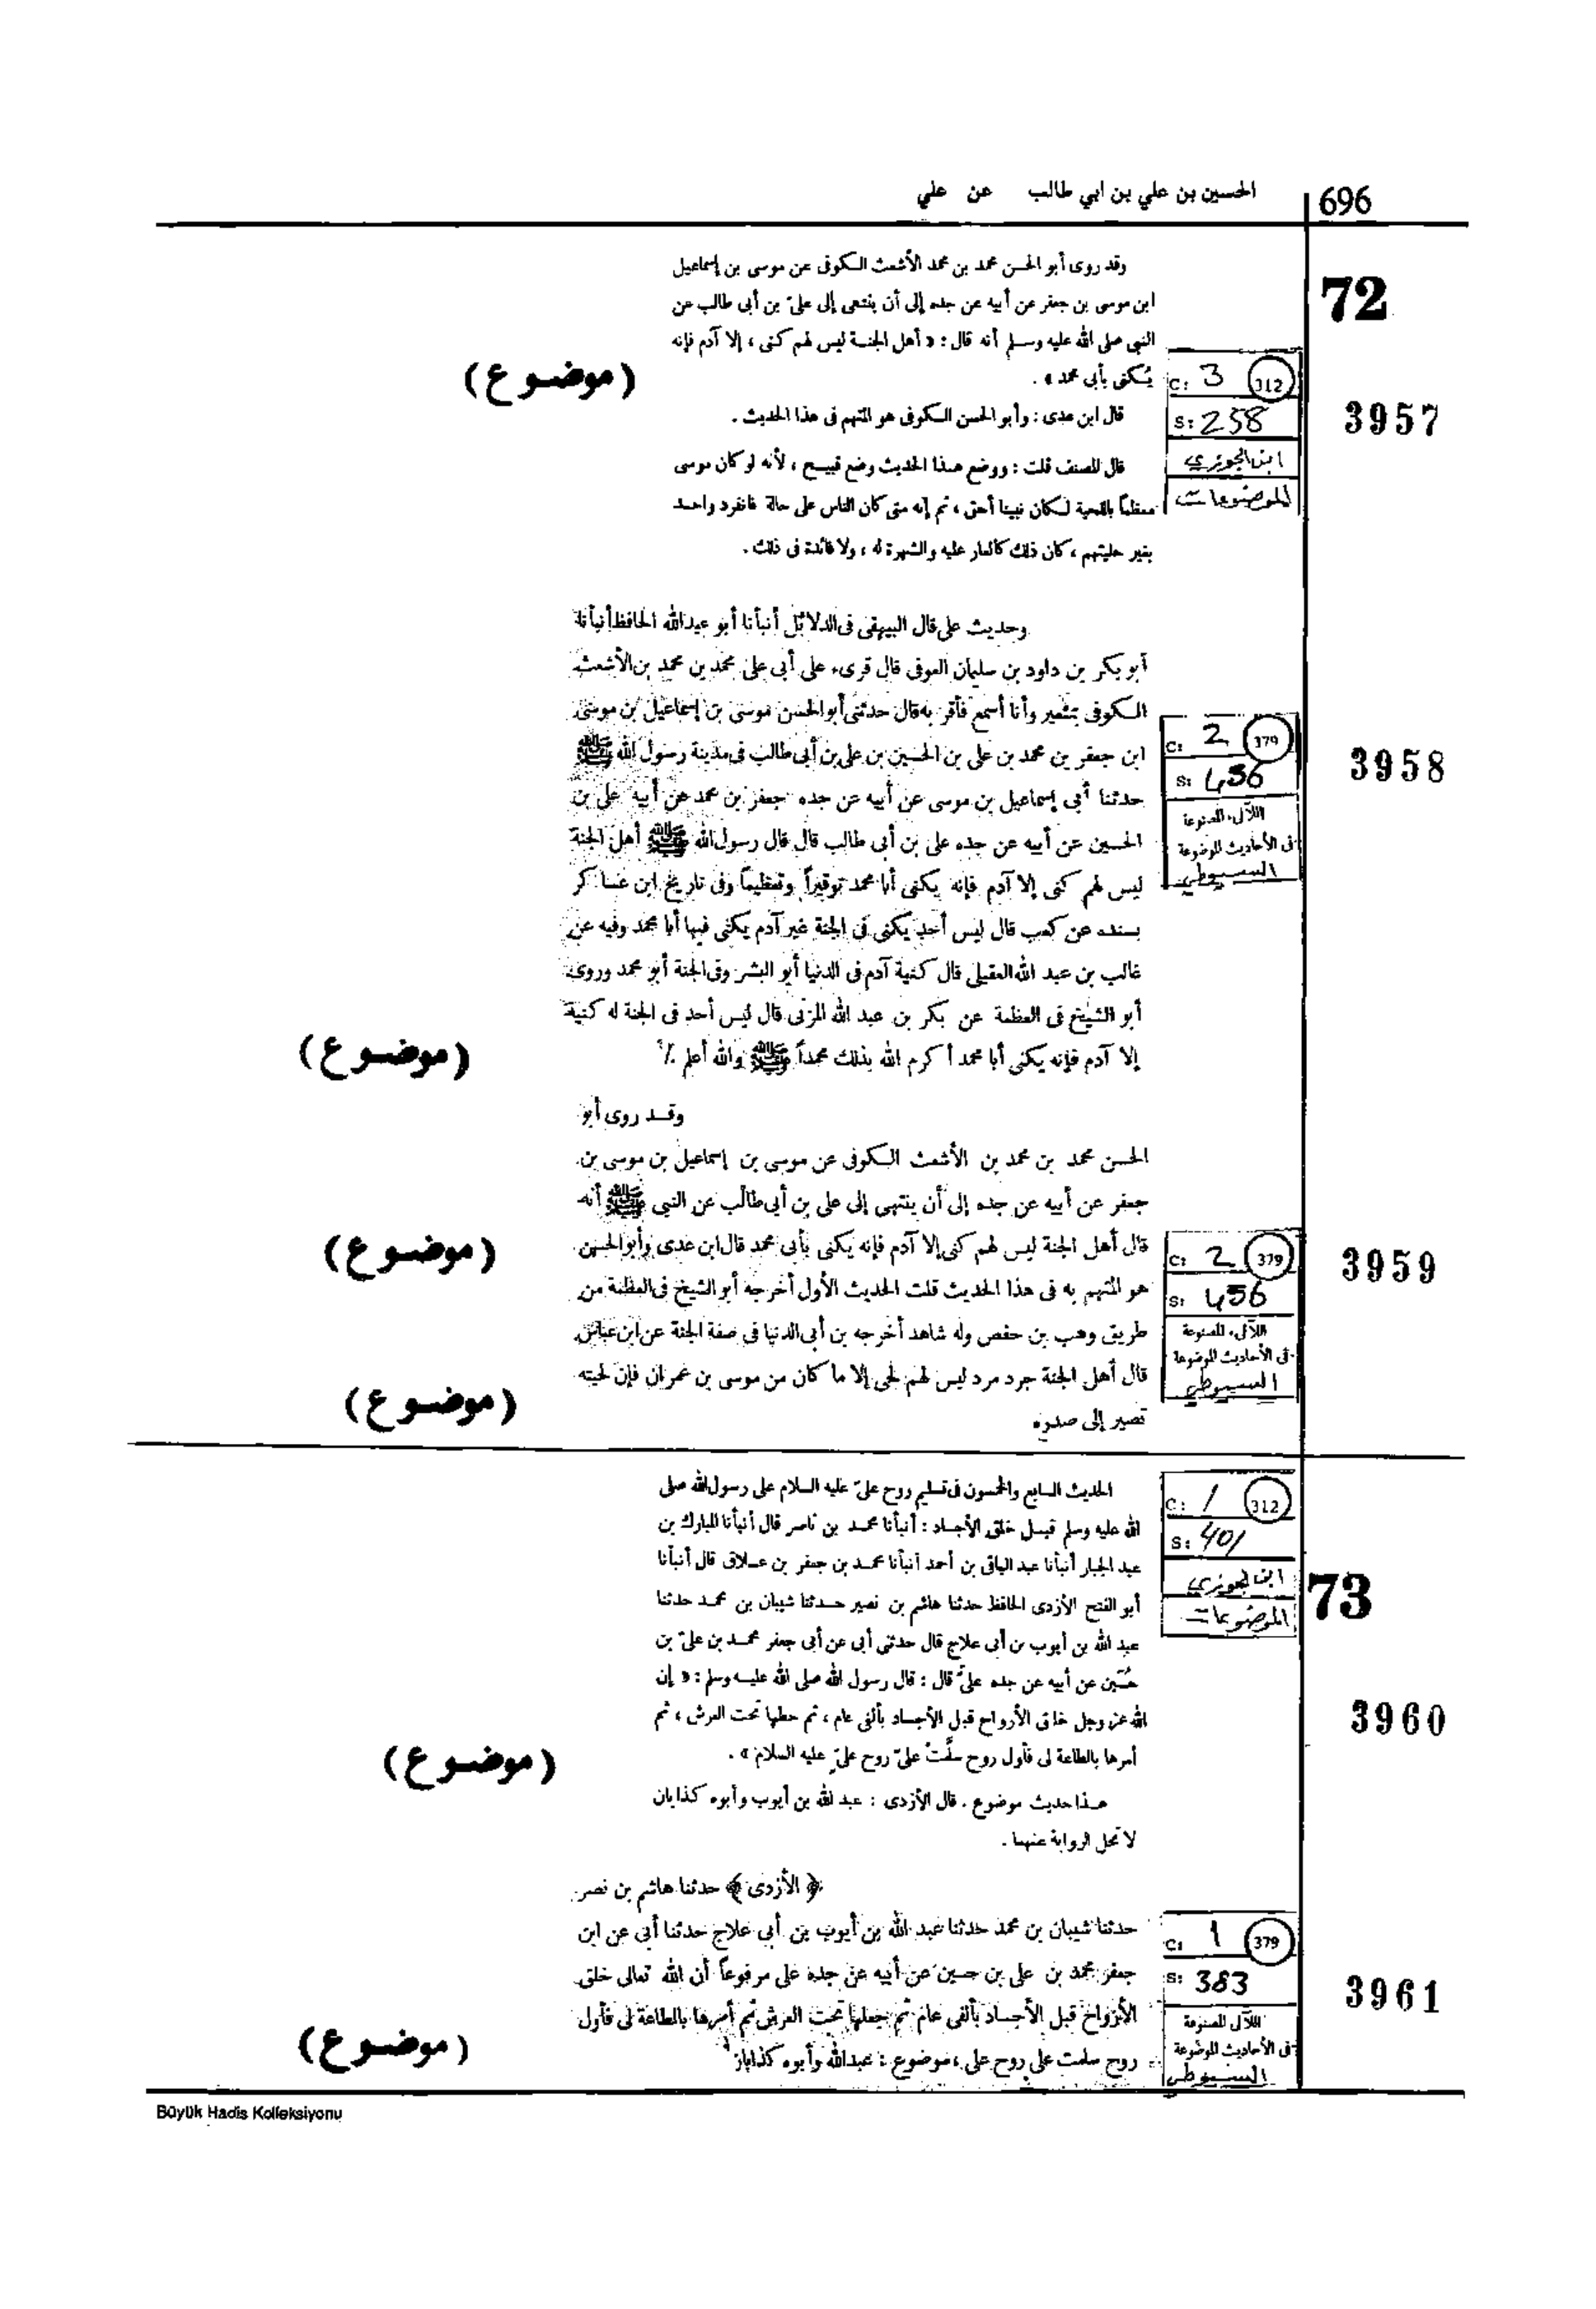 696
الحسين بن علي بن ابي طالب عن علي
72
وقد روى أبو الحسن محمد بن محمد الأشعث الكوفى عن موسى بن إسماعيل
ابن موسى بن جعفر عن أبيه عن جده إلى أن ينتهى إلى علىّ بن أبى طالب عن
النبى صلى الله عليه وسلم أنه قال : « أهل الجنة ليس لهم كنى ، إلا آدم فإنه
يُكنى بأبى محمد » .
(موضوع)
قال ابن عدى : وأبو الحسن الكوفى هو المتهم فى هذا الحديث .
قال المصنف قلت : ووضع هذا الحديث وضع قبيح ، لأنه لو كان موسى
معظماً باللحية لكان نبينا أحق ، ثم إنه متى كان الناس على حالة فانفرد واحد
بغير حليتهم ، كان ذلك كالعار عليه والشهرة له ، ولا فائدة فى ذلك .
C: 3 312
S: 258
ابن الجوزي
الموضوعات
3957
وحديث على قال البيهقى فى الدلائل أنبأنا أبو عبد الله الحافظ أنبأنا
أبو بكر بن داود بن سليمان الصوفى قال قرىء على أبى على محمد بن محمد بن الأشعث
الكوفى بمصر وأنا أسمع فأقر به قال حدثنى أبو الحسن موسى بن إسماعيل بن موسى
ابن جعفر بن محمد بن على بن الحسين بن على بن أبى طالب فى مدينة رسول الله ﷺ
حدثنا أبى إسماعيل بن موسى عن أبيه عن جده جعفر بن محمد عن أبيه على بن
الحسين عن أبيه عن جده على بن أبى طالب قال قال رسول الله ﷺ أهل الجنة
ليس لهم كنى إلا آدم فإنه يكنى أبا محمد توقيراً وتعظيماً وفى تاريخ ابن عساكر
بسنده عن كعب قال ليس أحد يكنى فى الجنة غير آدم يكنى فيها أبا محمد وفيه عن
غالب بن عبد الله العقيلى قال كنية آدم فى الدنيا أبو البشر وفى الجنة أبو محمد وروى
أبو الشيخ فى العظمة عن بكر بن عبد الله المزنى قال ليس أحد فى الجنة له كنية
إلا آدم فإنه يكنى أبا محمد أكرم الله بذلك محمداً ﷺ والله أعلم
(موضوع)
C: 2 379
S: 456
اللآلى المصنوعة
فى الأحاديث الموضوعة
السيوطي
3958
وقد روى أبو
الحسن محمد بن محمد بن الأشعث الكوفى عن موسى بن إسماعيل بن موسى بن
جعفر عن أبيه عن جده إلى أن ينتهى إلى على بن أبى طالب عن النبى ﷺ أنه
قال أهل الجنة ليس لهم كنى إلا آدم فإنه يكنى بأبى محمد قال ابن عدى وأبو الحسن
(موضوع)
هو المتهم به فى هذا الحديث قلت الحديث الأول أخرجه أبو الشيخ فى العظمة من
طريق وهب بن حفص وله شاهد أخرجه بن أبى الدنيا فى صفة الجنة عن ابن عباس
قال أهل الجنة جرد مرد ليس لهم لحى إلا ما كان من موسى بن عمران فإن لحيته
(موضوع)
تصير إلى صدره
C: 2 379
S: 456
اللآلى المصنوعة
فى الأحاديث الموضوعة
السيوطي
3959
الحديث السابع والخمسون فى تسليم روح علىّ عليه السلام على رسول الله صلى
الله عليه وسلم قبل خلق الأجساد : أنبأنا محمد بن ناصر قال أنبأنا المبارك بن
عبد الجبار أنبأنا عبد الباقى بن أحمد أنبأنا محمد بن جعفر بن علاق قال أنبأنا
أبو الفتح الأزدى الحافظ حدثنا هاشم بن نصير حدثنا شيبان بن محمد حدثنا
عبد الله بن أيوب بن أبى علاج قال حدثنى أبى عن أبى جعفر محمد بن علىّ بن
حُسَين عن أبيه عن جده علىّ قال : قال رسول الله صلى الله عليه وسلم : « إن
الله عز وجل خلق الأرواح قبل الأجساد بألفى عام ، ثم حطها تحت العرش ، ثم
أمرها بالطاعة لى فأول روح سلَّمتْ علىّ روح علىّ عليه السلام » .
(موضوع)
هذا حديث موضوع . قال الأزدى : عبد الله بن أيوب وأبوه كذابان
لا تحل الرواية عنهما .
C: 1 312
S: 401
ابن الجوزي
الموضوعات
73
3960
﴿ الأزدى ﴾ حدثنا هاشم بن نصر
حدثنا شيبان بن محمد حدثنا عبد الله بن أيوب بن أبى علاج حدثنا أبى عن ابن
جعفر محمد بن على بن حسين عن أبيه عن جده على مرفوعاً أن الله تعالى خلق
الأرواح قبل الأجساد بألفى عام ثم جعلها تحت العرش ثم أمرها بالطاعة لى فأول
روح سلمت على روح على ، موضوع : عبد الله وأبوه كذابان
(موضوع)
C: 1 379
S: 383
اللآلى المصنوعة
فى الأحاديث الموضوعة
السيوطي
3961
Büyük Hadis Kolleksiyonu